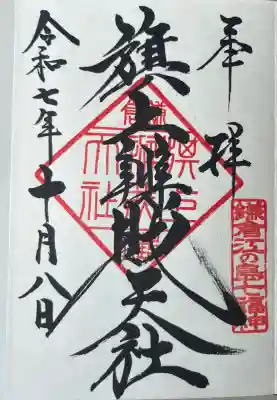 奉拝
鎌倉江の島七福神
旗上辨財天社
令和七年十月八日